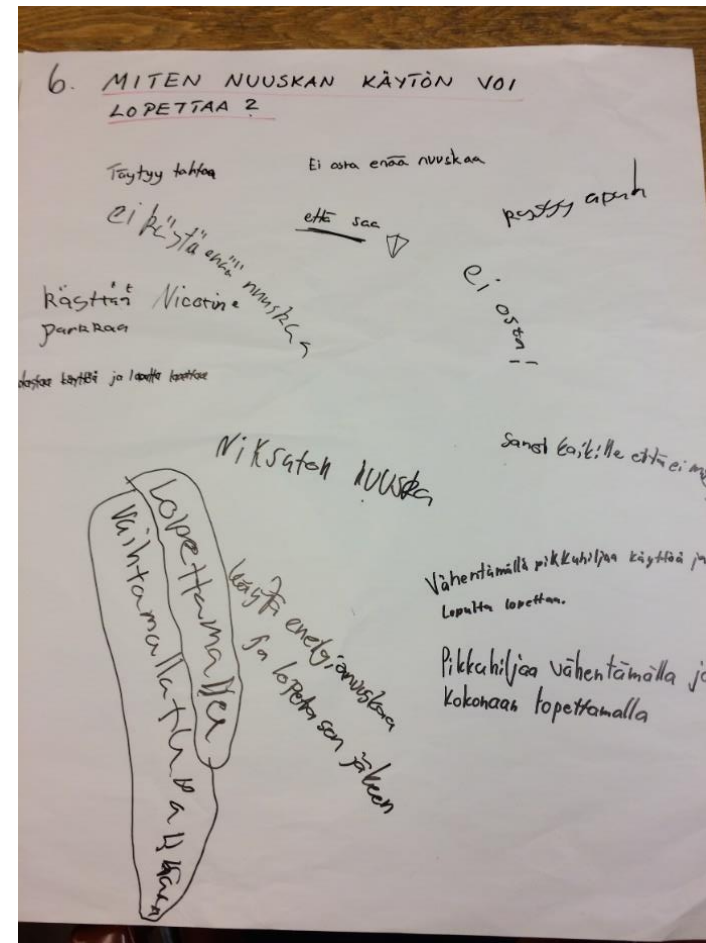 6. MITEN NUUSKAN KÄYTÖN VOI
LOPETTAA?
Täytyy tahtoa
Ei osta enää nuuskaa
että saa
pystyy
ei käytä enää nuuskaa
ei osta!
käyttää Nicotine
purkkaa
käyttöä ja lopulta lopettaa
Niksaton nuuska
Sanoi kaikille että ei
Lopettamalla
vaihtamalla tupakkaan
käyttä energianuuskaa
ja lopetta sen jälkeen
Vähentämällä pikkuhiljaa käyttöä ja
Lopulta lopettaa.
Pikkuhiljaa vähentämällä ja
kokonaan lopettamalla